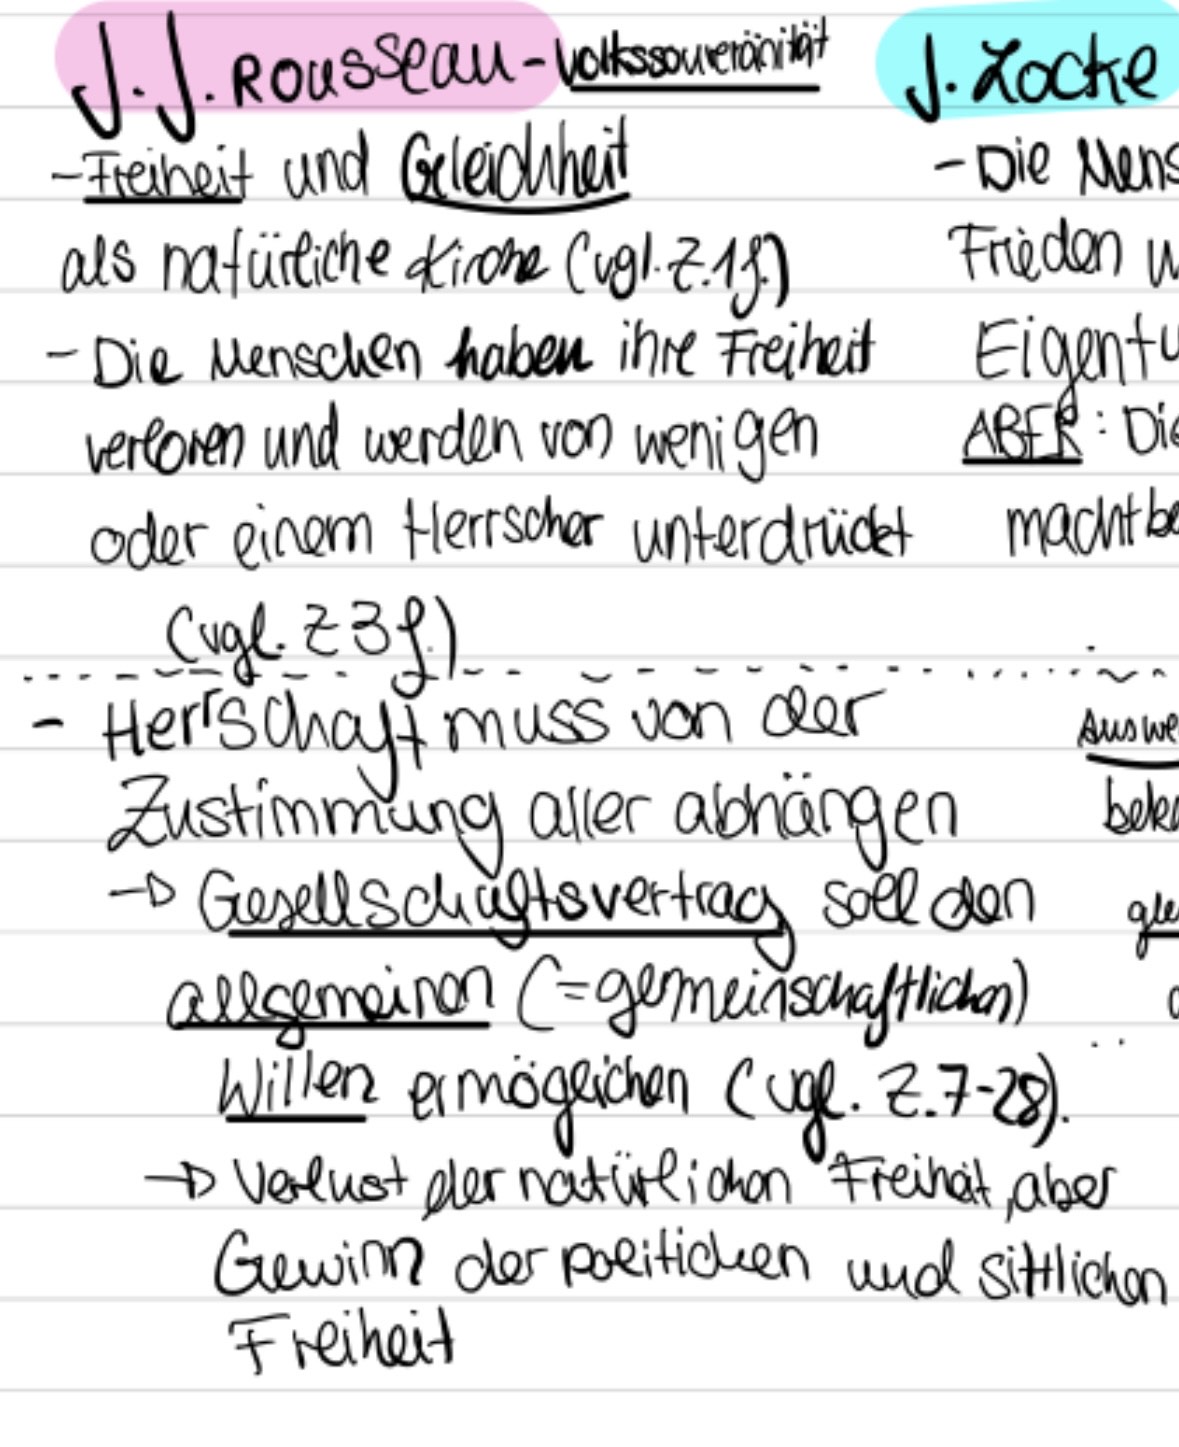 J.J. Rousseau - Volkssouveränität
- Freiheit und Gleichheit
als natürliche Kirche (vgl. Z.1f.)
- Die Menschen haben ihre Freiheit
verloren und werden von wenigen
oder einem Herrscher unterdrückt
(vgl. Z 3 f.)
- Herrschaft muss von der
Zustimmung aller abhängen
→ Gesellschaftsvertrag soll den
allgemeinen (=gemeinschaftlichen)
Willen ermöglichen (vgl. Z.7-28).
→ Verlust der natürlichen Freiheit, aber
Gewinn der politichen und sittlichen
Freiheit
J. Locke
- Die Mens
Frieden w
Eigentu
ABER: Die
machtbe
Auswe
beka
gle